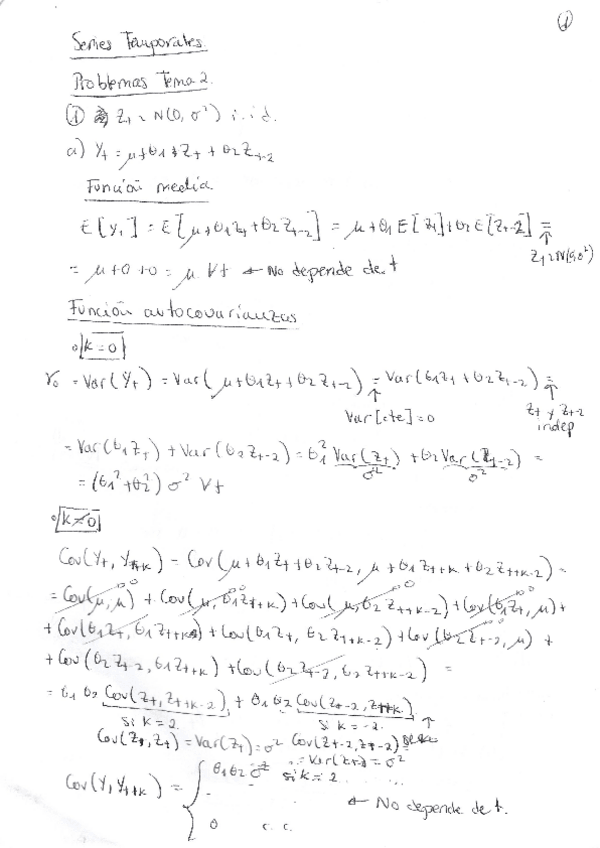 1
Series Temporales.
Problemas Tema 2.
① Z_t ~ N(0, σ²) i.i.d.
a) Y_t = μ + θ1 Z_t + θ2 Z_{t-2}
Función media
E[Y_t] = E[μ + θ1 Z_t + θ2 Z_{t-2}] = μ + θ1 E[Z_t] + θ2 E[Z_{t-2}] =
↑
Z_t ~ N(0, σ²)
= μ + 0 + 0 = μ ∀t ← No depende de t
Función autocovarianzas
k=0
γ0 = Var(Y_t) = Var(μ + θ1 Z_t + θ2 Z_{t-2}) = Var(θ1 Z_t + θ2 Z_{t-2}) =
↑ ↑
Var[cte]=0 Z_t y Z_{t-2}
indep
= Var(θ1 Z_t) + Var(θ2 Z_{t-2}) = θ1² Var(Z_t) + θ2 Var(Z_{t-2}) =
σ² σ²
= (θ1² + θ2²) σ² ∀t
k≠0
Cov(Y_t, Y_{t+k}) = Cov(μ + θ1 Z_t + θ2 Z_{t-2}, μ + θ1 Z_{t+k} + θ2 Z_{t+k-2}) =
= Cov(μ, μ) + Cov(μ, θ1 Z_{t+k}) + Cov(μ, θ2 Z_{t+k-2}) + Cov(θ1 Z_t, μ) +
+ Cov(θ1 Z_t, θ1 Z_{t+k}) + Cov(θ1 Z_t, θ2 Z_{t+k-2}) + Cov(θ2 Z_{t-2}, μ) +
+ Cov(θ2 Z_{t-2}, θ1 Z_{t+k}) + Cov(θ2 Z_{t-2}, θ2 Z_{t+k-2}) =
= θ1 θ2 Cov(Z_t, Z_{t+k-2}) + θ1 θ2 Cov(Z_{t-2}, Z_{t+k})
si k=2. si k=-2. ↑
Cov(Z_t, Z_t) = Var(Z_t) = σ² Cov(Z_{t-2}, Z_{t-2})
= Var(Z_{t-2}) = σ²
Cov(Y_t, Y_{t+k}) = { θ1 θ2 σ² si k = 2
← No depende de t.
0 c.c.